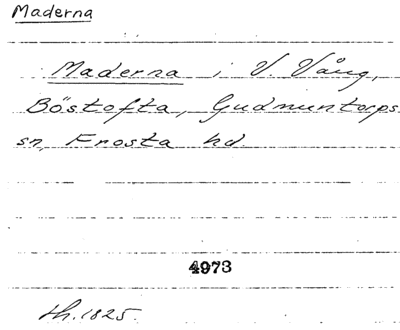 Maderna
Maderna i V. Vång,
Böstofta, Gudmuntorps
sn, Frosta hd.
4973
th. 1825.